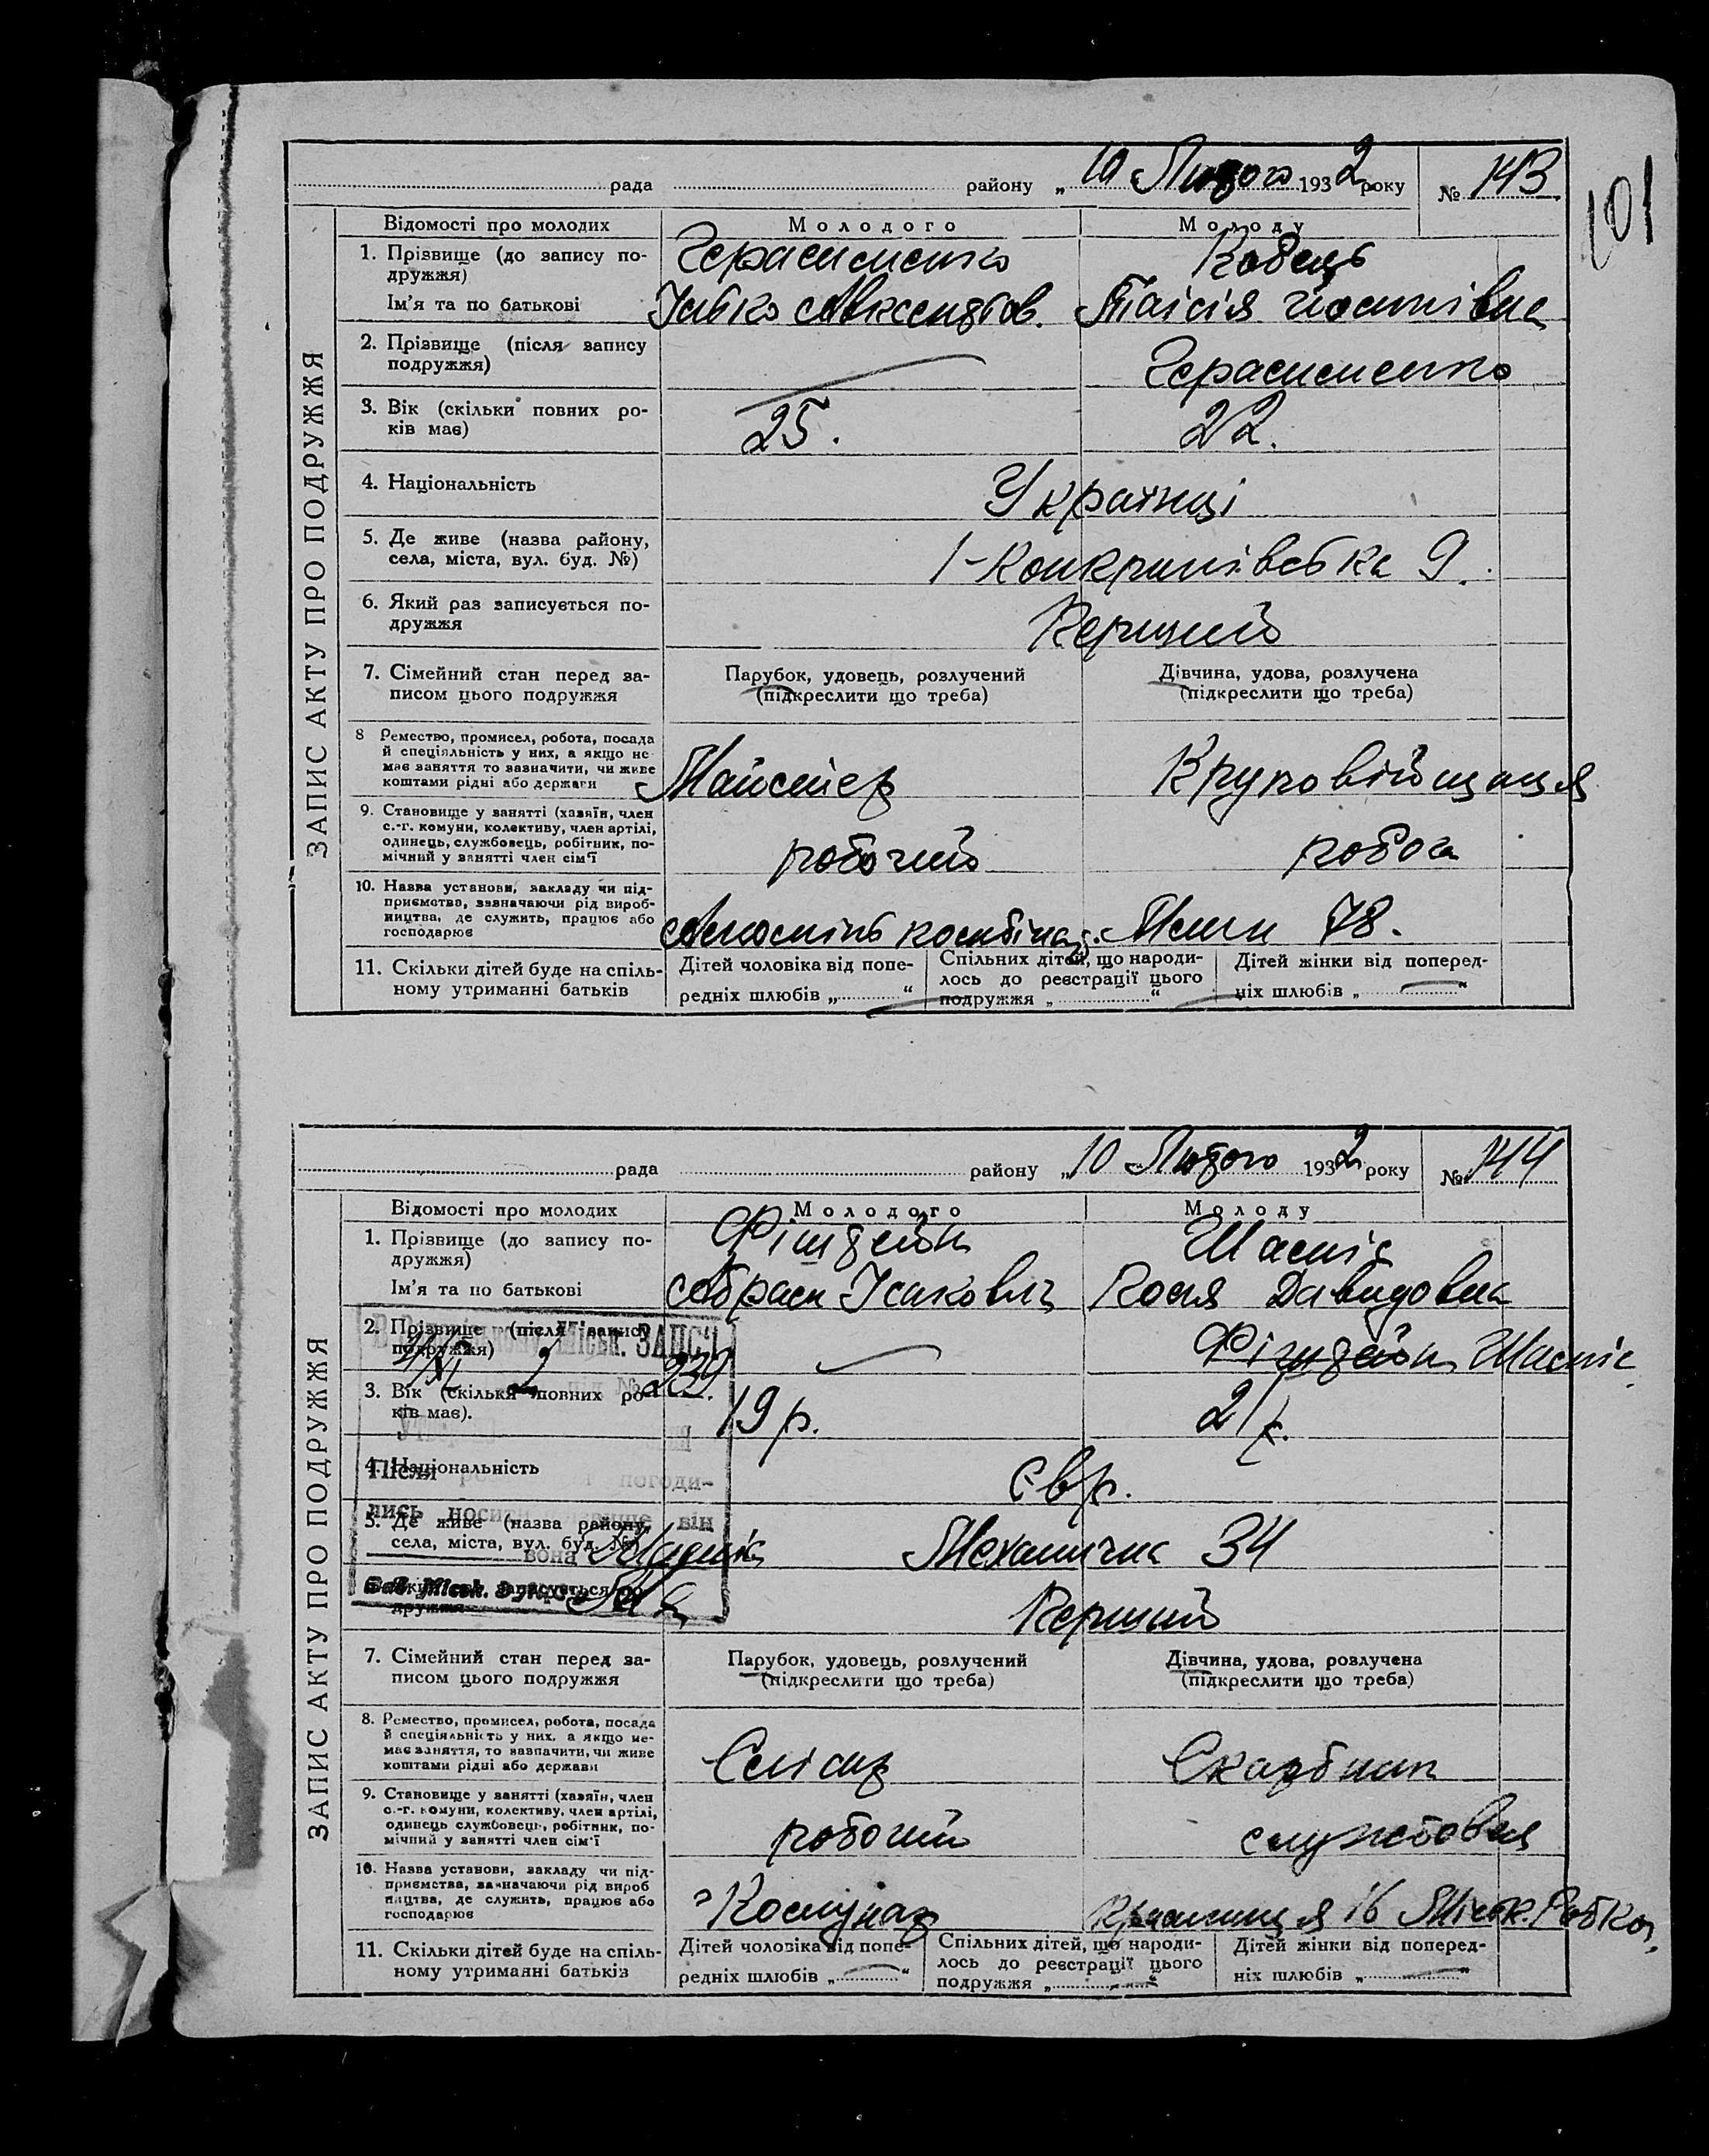 101
рада району „10 Лютого 1932 року № 143
ЗАПИС АКТУ ПРО ПОДРУЖЖЯ
Відомості про молодих Молодого Молоду
1. Прізвище (до запису по-
дружжя) Герасименко
Ім'я та по батькові Таісія Йосипівна
2. Прізвище (після запису
подружжя) Герасименко
3. Вік (скільки повних ро-
ків має) 25. 22.
4. Національність Українці
5. Де живе (назва району,
села, міста, вул. буд. №) 9.
6. Який раз записується по-
дружжя Перший
7. Сімейний стан перед за- Парубок, удовець, розлучений Дівчина, удова, розлучена
писом цього подружжя (підкреслити що треба) (підкреслити що треба)
8 Ремество, промисел, робота, посада
й спеціяльність у них, а якщо не
має заняття то зазначити, чи живе
коштами рідні або держави Майстер
9. Становище у занятті (хазяїн, член
с.-г. комуни, колективу, член артілі,
одинець, службовець, робітник, по-
мічний у занятті член сім'ї робочий
10. Назва установи, закладу чи під-
приємства, зазначаючи рід вироб-
ництва, де служить, працює або
господарює 78.
11. Скільки дітей буде на спіль- Дітей чоловіка від попе- Спільних дітей, що народи- Дітей жінки від поперед-
ному утриманні батьків редніх шлюбів „ “ лось до реєстрації цього ніх шлюбів „ “
подружжя „ “
рада району „10 Лютого 1932 року № 144
ЗАПИС АКТУ ПРО ПОДРУЖЖЯ
Відомості про молодих Молодого Молоду
1. Прізвище (до запису по-
дружжя) Фіштейн Шапіс
Ім'я та по батькові Абрам Ісакович Давидовна
2. Прізвище (після запису
подружжя) Фіштейн Шапіс
Міськ. ЗАПСІ
239
3. Вік (скільки повних ро-
ків має). 19 р. 21 р.
4. Національність Євр.
Після погоди-
лись носити прізвище він
5. Де живе (назва району,
села, міста, вул. буд. №) Механична 34
вона
дружжя Перший
7. Сімейний стан перед за- Парубок, удовець, розлучений Дівчина, удова, розлучена
писом цього подружжя (підкреслити що треба) (підкреслити що треба)
8. Ремество, промисел, робота, посада
й спеціяльність у них, а якщо не-
має заняття, то зазначити, чи живе
коштами рідні або держави Слісар Скарбник
9. Становище у занятті (хазяїн, член
с.-г. комуни, колективу, член артілі,
одинець службовець, робітник, по-
мічний у занятті член сім'ї робочий службовця
10. Назва установи, закладу чи під-
приємства, зазначаючи рід вироб
ництва, де служить, працює або
господарює Комунар Крамниця 16 Міськ. Робкоп.
11. Скільки дітей буде на спіль- Дітей чоловіка від попе- Спільних дітей, що народи- Дітей жінки від поперед-
ному утриманні батьків редніх шлюбів „ “ лось до реєстрації цього ніх шлюбів „ “
подружжя „ “